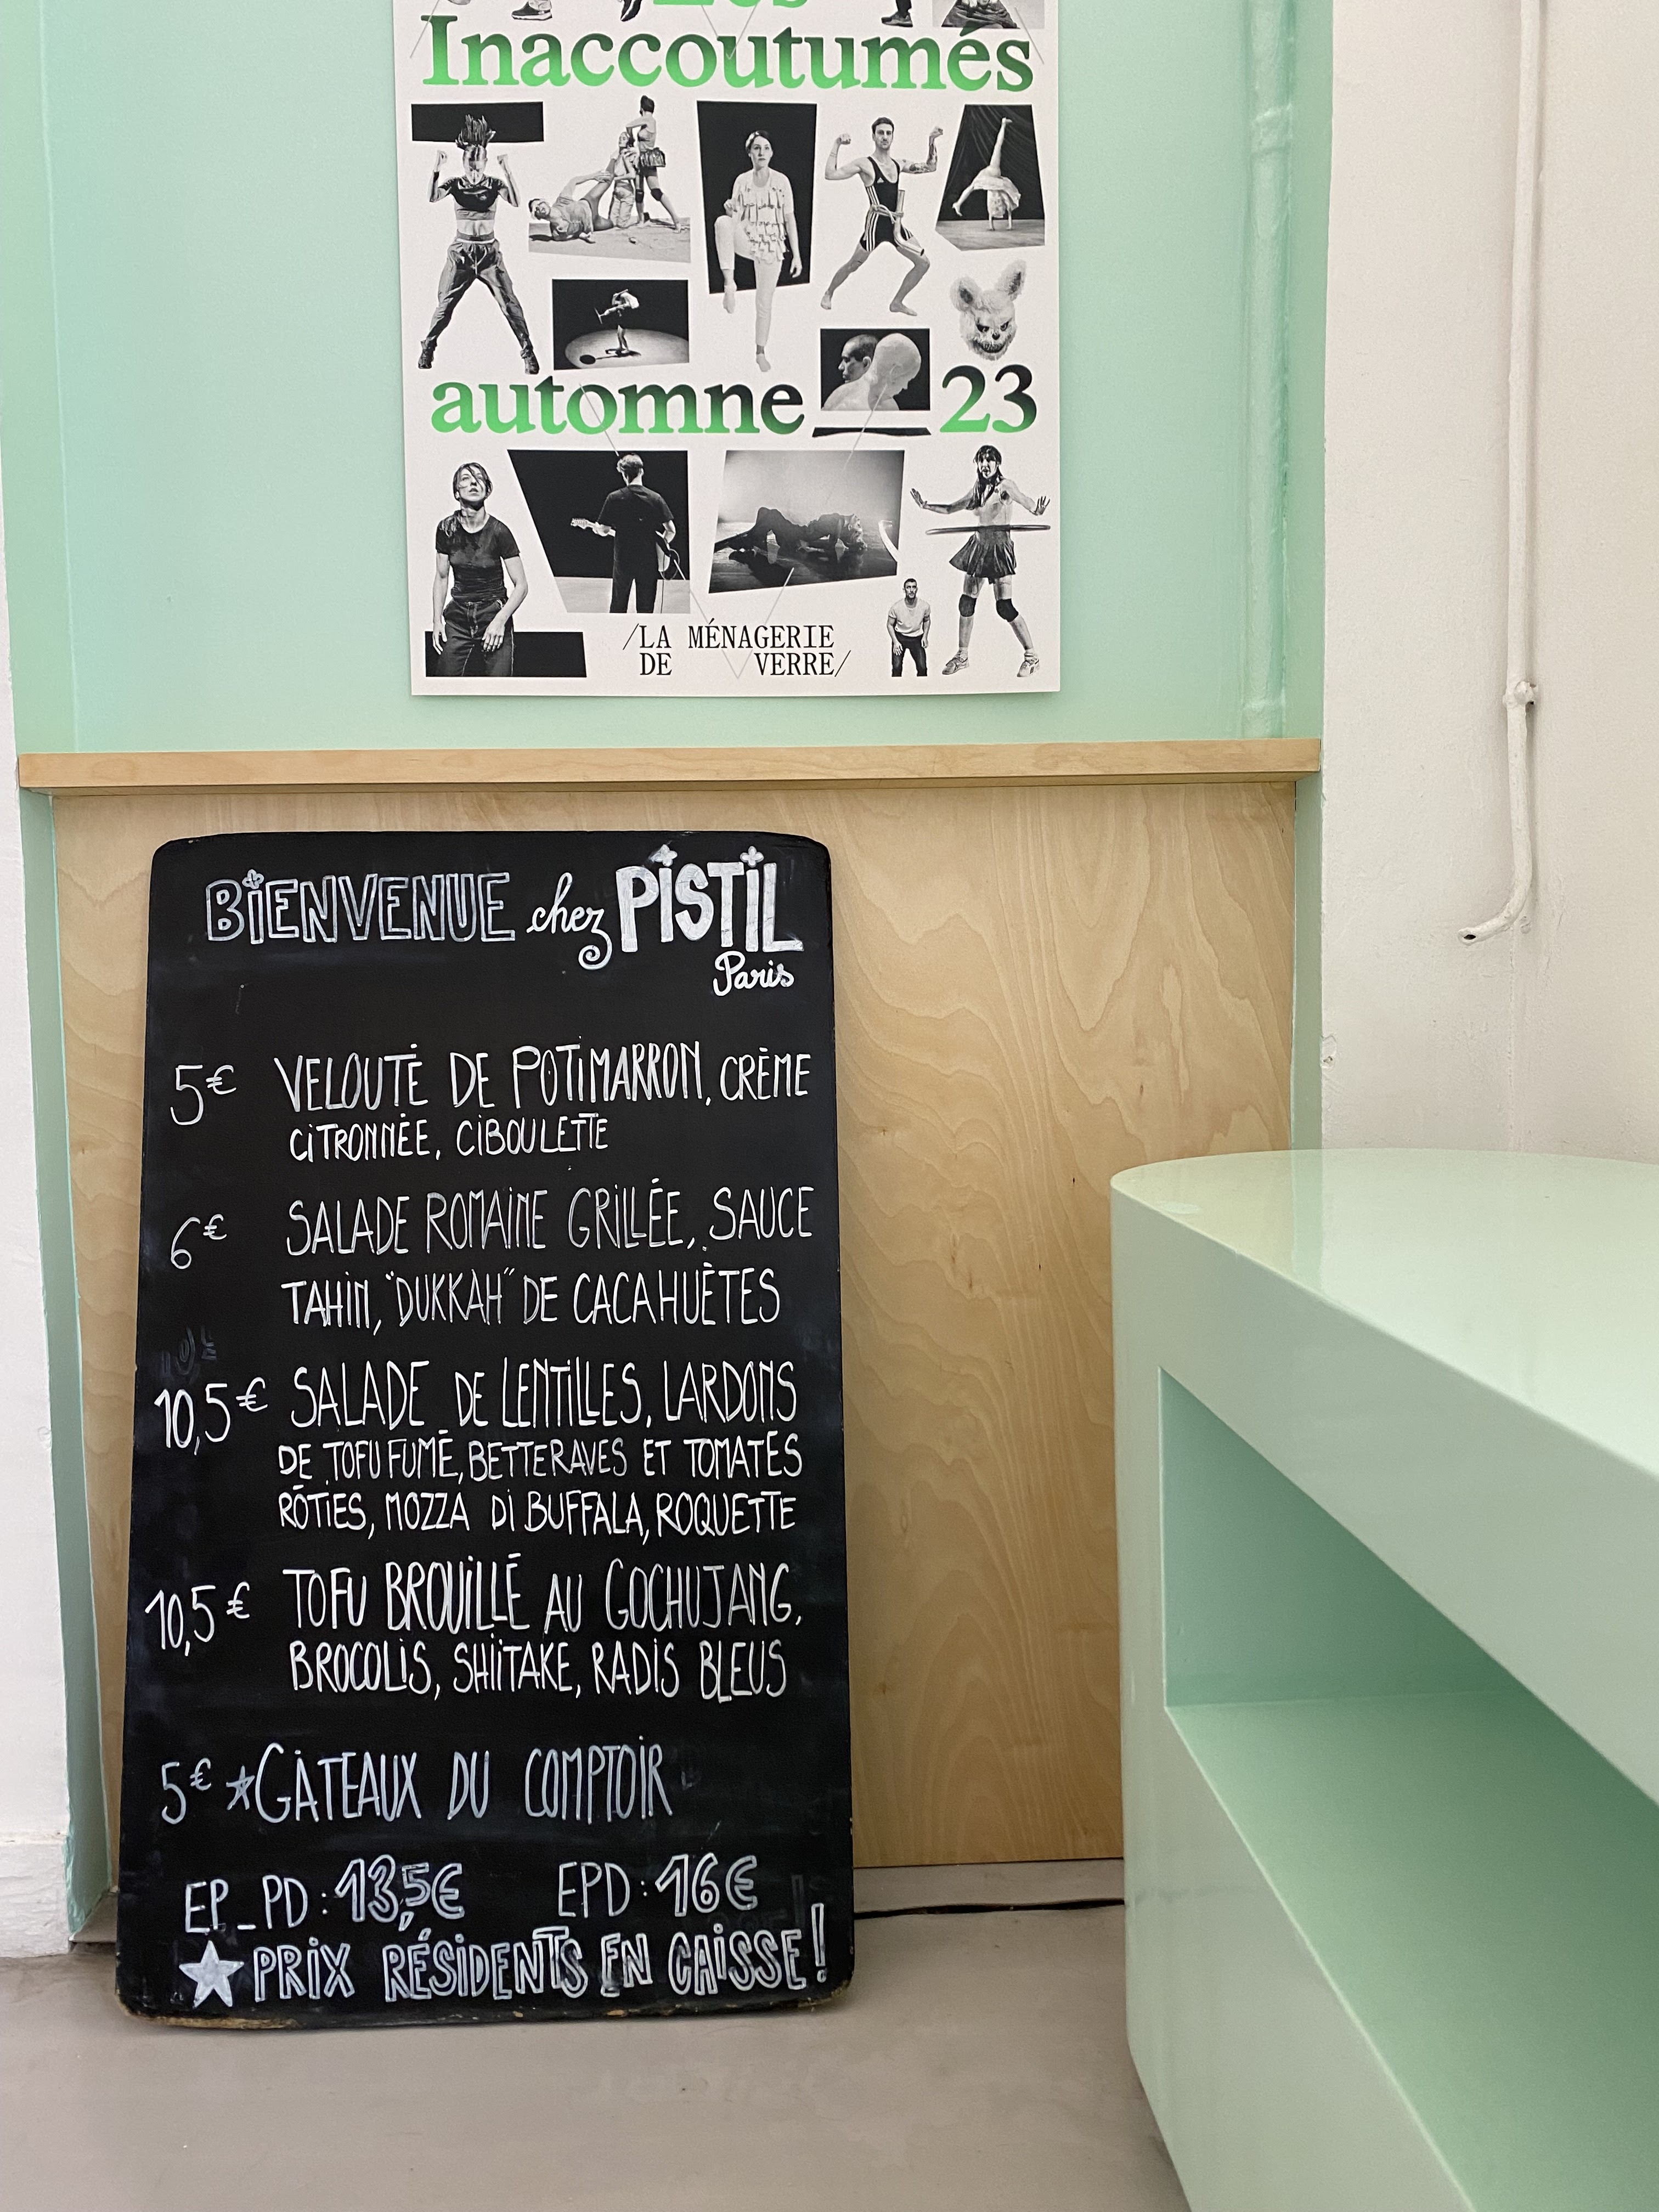 Les
Inaccoutumés
automne 23
/LA MÉNAGERIE
DE VERRE/
BIENVENUE chez PISTIL
Paris
5€ VELOUTÉ DE POTIMARRON, CRÈME
CITRONNÉE, CIBOULETTE
6€ SALADE ROMAINE GRILLÉE, SAUCE
TAHIN, "DUKKAH" DE CACAHUÈTES
10,5€ SALADE DE LENTILLES, LARDONS
DE TOFU FUMÉ, BETTERAVES ET TOMATES
RÔTIES, MOZZA DI BUFFALA, ROQUETTE
10,5€ TOFU BROUILLÉ AU GOCHUJANG,
BROCOLIS, SHIITAKE, RADIS BLEUS
5€ ★GÂTEAUX DU COMPTOIR
EP_PD: 13,5€ EPD: 16€
★ PRIX RÉSIDENTS EN CAISSE!